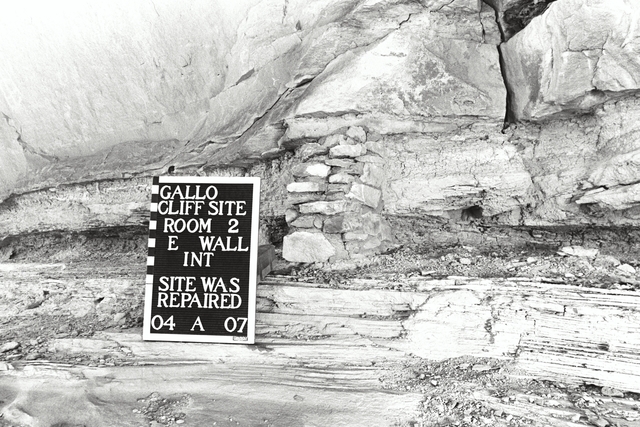 GALLO
CLIFF SITE
ROOM 2
E WALL
INT
SITE WAS
REPAIRED
04 A 07